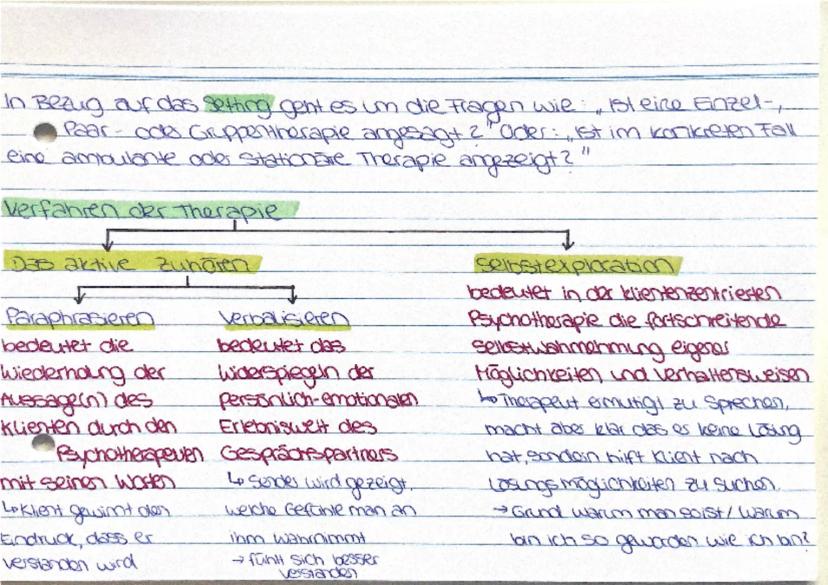 In Bezug auf das Setting geht es um die Fragen wie: „Ist eine Einzel-,
Paar- oder Gruppentherapie angesagt?" Oder: „Ist im konkreten Fall
eine ambulante oder stationäre Therapie angezeigt?"
Verfahren der Therapie
Das aktive Zuhören
Paraphrasieren
bedeutet die
Wiederholung der
Aussage(n) des
Klienten durch den
Psychotherapeuten
mit seinen Worten
↳ Klient gewinnt den
Eindruck, dass er
verstanden wird
Verbalisieren
bedeutet das
Widerspiegeln der
persönlich-emotionalen
Erlebniswelt des
Gesprächspartners
↳ Sender wird gezeigt,
welche Gefühle man an
ihm wahrnimmt
→ fühlt sich besser
verstanden
Selbstexploration
bedeutet in der klientenzentrierten
Psychotherapie die fortschreitende
Selbstwahrnehmung eigener
Möglichkeiten und Verhaltensweisen
↳ Therapeut ermutigt zu Sprechen,
macht aber klar das es keine Lösung
hat, sondern hilft Klient nach
Lösungsmöglichkeiten zu suchen
→ Grund warum man so ist / warum
bin ich so geworden wie ich bin?